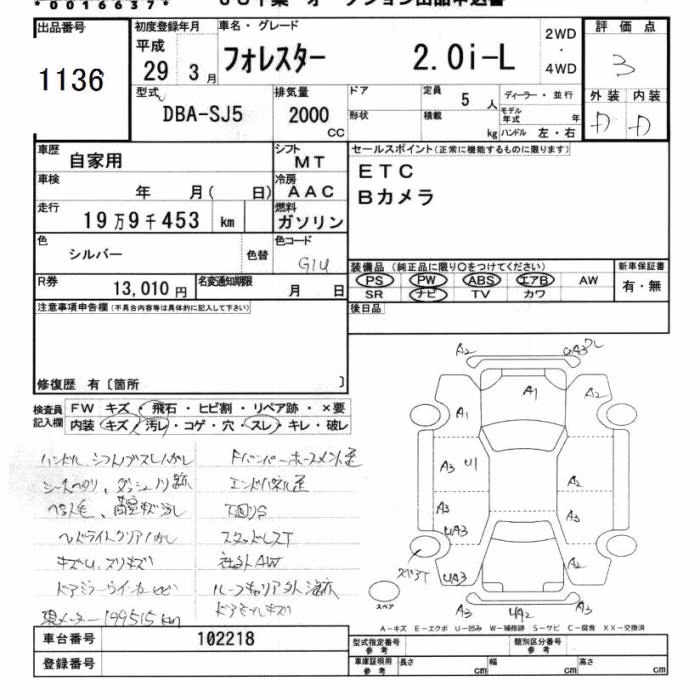 *0016637*
出品番号
1136
初度登録年月
平成
29 3月
車名・グレード
フォレスター 2.0i-L
2WD
・
4WD
評価点
3
型式
DBA-SJ5
排気量
2000
CC
ドア
形状
定員
5人
積載
kg
ディーラー・並行
モデル年式 年
ハンドル 左・右
外装 内装
D D
車歴
自家用
シフト
MT
車検
年 月( 日)
冷房
AAC
走行
19万9千453 km
燃料
ガソリン
色
シルバー
色替
色コード
G1U
R券
13,010円
名変通知期限
月 日
セールスポイント(正常に機能するものに限ります)
ETC
Bカメラ
装備品(純正品に限り○をつけてください)
PS PW ABS エアB AW
SR ナビ TV カワ
新車保証書
有・無
後日品
注意事項申告欄(不具合内容等は具体的に記入して下さい)
修復歴 有〔箇所 〕
検査員記入欄
FW キズ・飛石・ヒビ割・リペア跡・×要
内装 キズ・汚レ・コゲ・穴・スレ・キレ・破レ
ヘッドライトクリアハガレ
キズU、スリキズ
ドアミラーウインカーヒビ
現メーター199515km
エンドパネル歪
下回りS
スタッドレスT
社外AW
ドアモールキズ
A2
A1
A2
A1
A3 U1
A2
A3
A3
UA3
UA3
A2
A3
UA2
A3
スペア
A-キズ E-エクボ U-凹み W-補修跡 S-サビ C-腐食 XX-交換済
車台番号
102218
登録番号
型式指定番号
参考
類別区分番号
参考
車庫証明用
参考
長さ cm
幅 cm
高さ cm